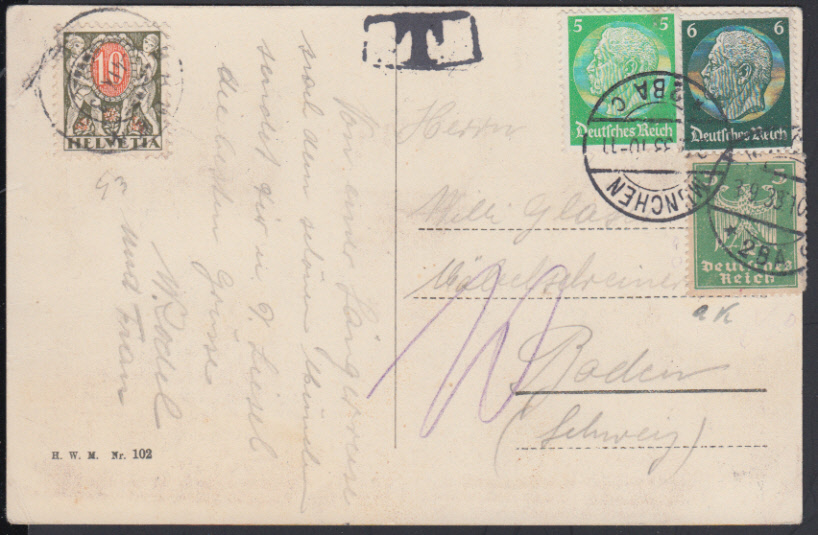 10
HELVETIA
T
5 5
Deutsches Reich
6 6
Deutsches Reich
5
Deutsches
Reich
MÜNCHEN
* 2BA
Von einer Sängerreise
nach dem schönen München
sendet dir u. d. Liesel
die besten Grüsse
W. Rodel
und Frau
Herrn
Willi Glas
Möbelschreiner
Baden
(Schweiz)
10
ak
H. W. M. Nr. 102